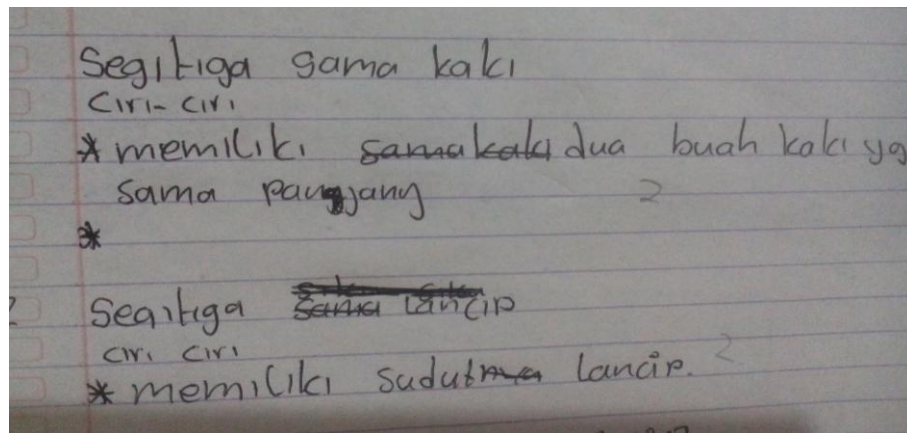 Segitiga sama kaki
Ciri-ciri
* memiliki samakaki dua buah kaki yg
sama pangjang 2
*
Segitiga sama lancip
ciri ciri
* memiliki sudutnya lancip. 2